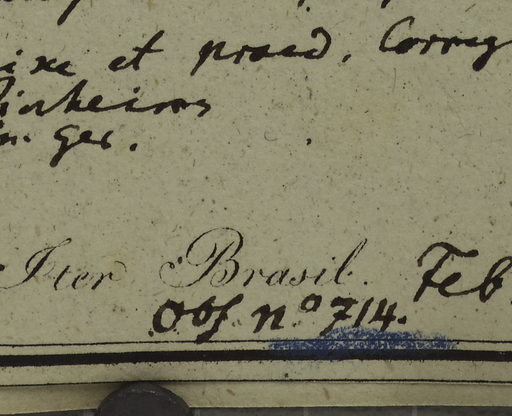 et praed. Correg
Pinheiros
Ger.
Iter Brasil. Feb
Obs nº 714.